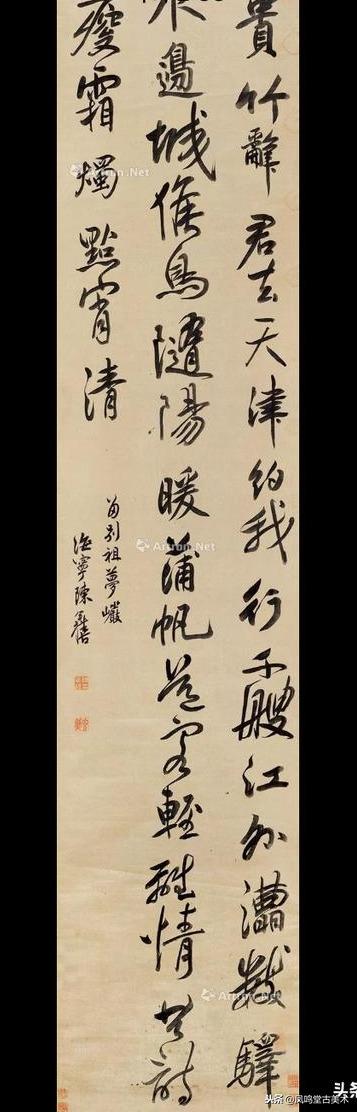 貴竹辭君去天津約我行千艘江外漕數驛
水邊城候鳥隨陽暖蒲帆送客輕離情共詩
瘦霜燭點宵清
留別祖夢巖
海寧陳奕禧
Artron.Net
Artron.Net
Artron.Net
Artron.Net
头条 @凤鸣堂古美术